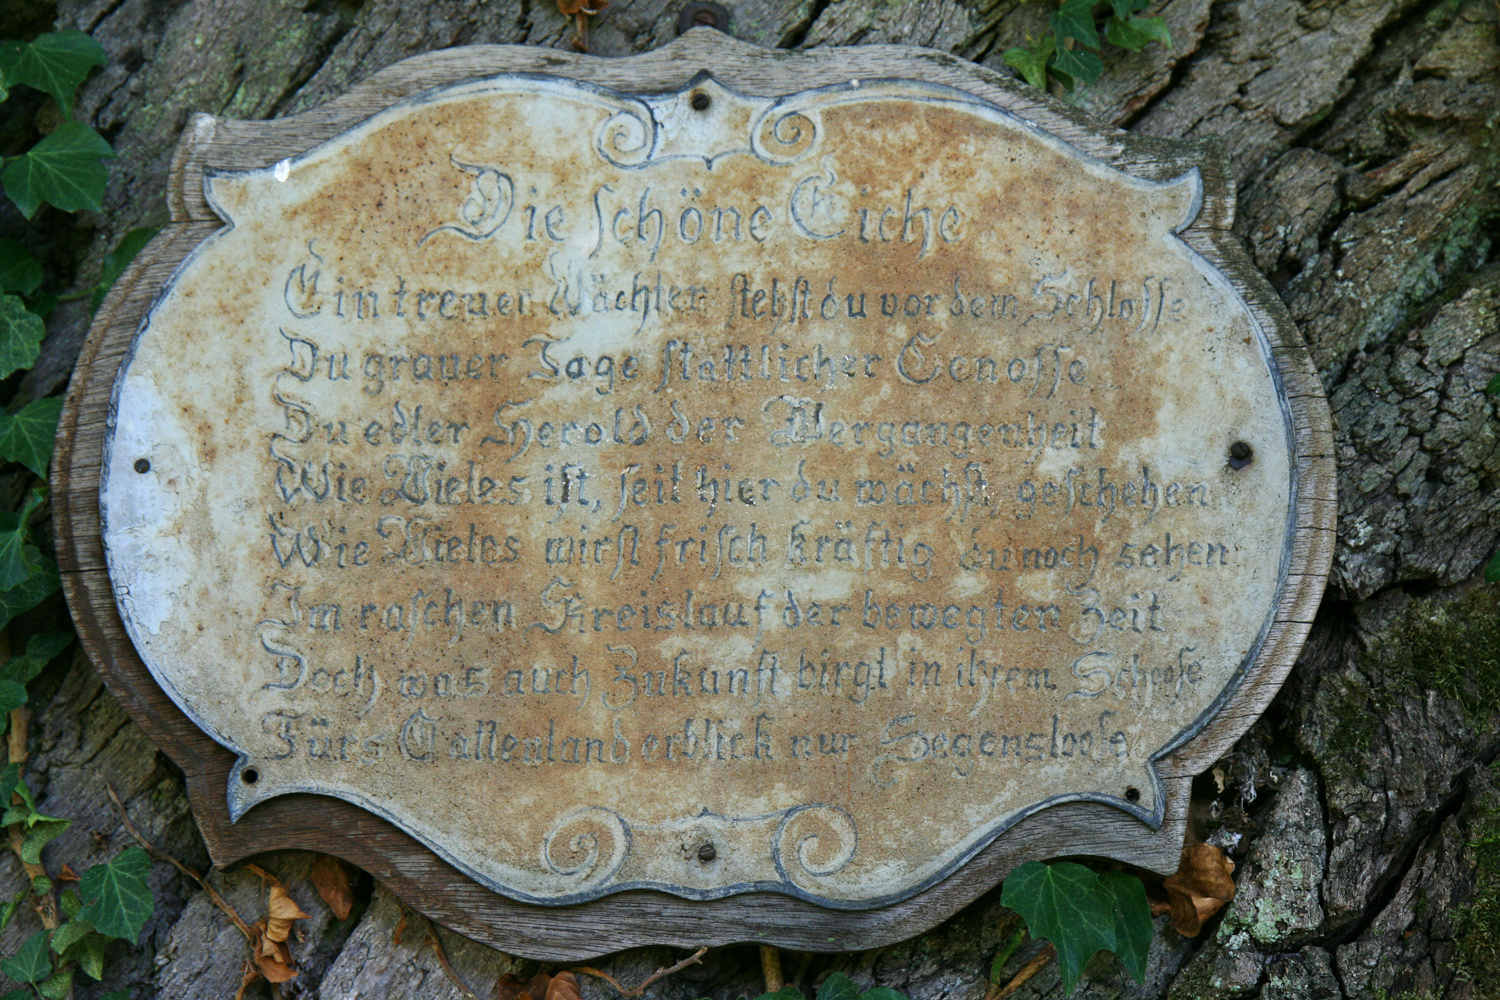 Die schöne Eiche
Ein treuer Wächter stehst du vor dem Schlosse
Du grauer Tage stattlicher Genosse
Du edler Herold der Vergangenheit
Wie Vieles ist, seit hier du wächst, geschehen
Wie Vieles wirst frisch kräftig du noch sehen
Im raschen Kreislauf der bewegten Zeit
Doch was auch Zukunft birgt in ihrem Schoose
Fürs Gattenland erblick nur Segensloose